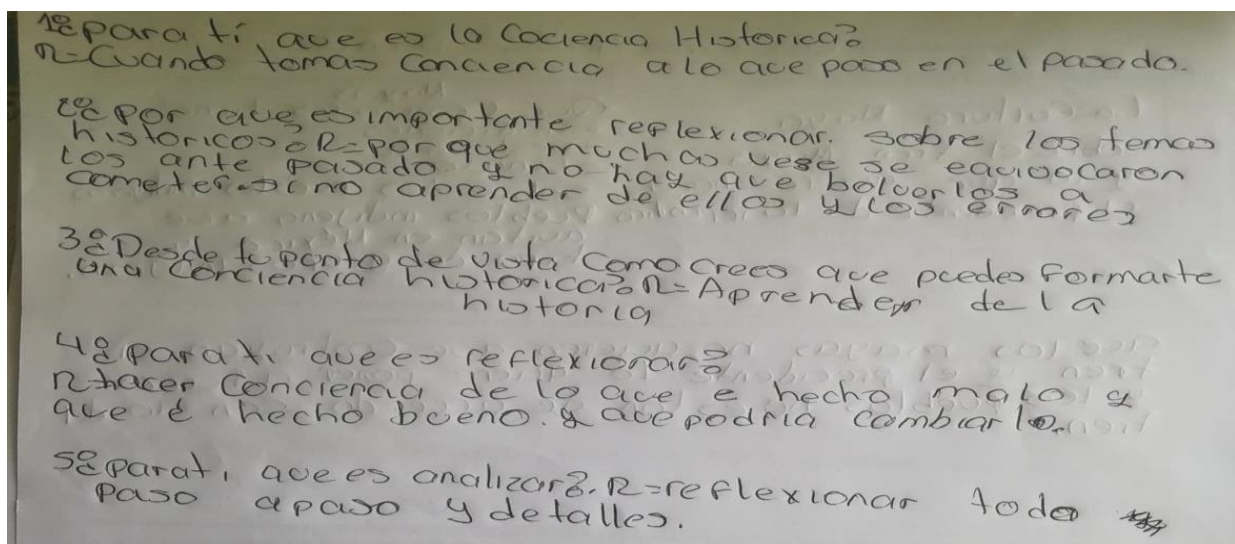 1º¿para tí que es la Cociencia Historica?
R=Cuando tomas conciencia a lo que paso en el pasado.
2º¿Por que es importante reflexionar. sobre los temas
historicos? R=por que muchas vese se equivocaron
los ante pasado y no hay que bolverlos a
cometer. si no aprender de ellos y los errores
3º¿Desde tu punto de vista Como Crees que puedes Formarte
una Conciencia historica? R=Aprender de la
historia
4º¿para ti que es reflexionar?
R=hacer Conciencia de lo que e hecho malo y
que é hecho bueno. y que podria cambiarlo.
5º¿para ti que es analizar?. R=reflexionar todo
paso a paso y detalles.